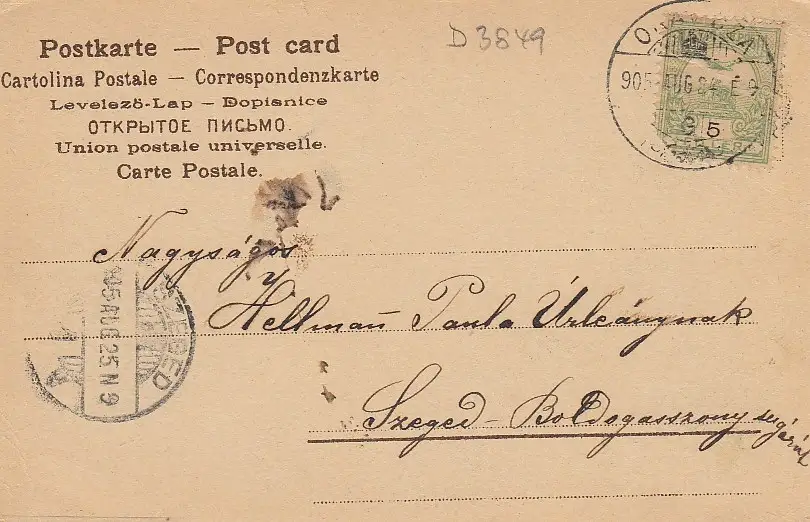 Postkarte — Post card
D 3849
Cartolina Postale — Correspondenzkarte
Levelező-Lap — Dopisnice
ОТКРЫТОЕ ПИСЬМО.
Union postale universelle.
Carte Postale.
905 AUG 24 E 9
5
Nagyságos
Hellmañ Paula Úrleánynak
Szeged - Boldogasszony sugárút
SZEGED
905 AUG 25 N 9